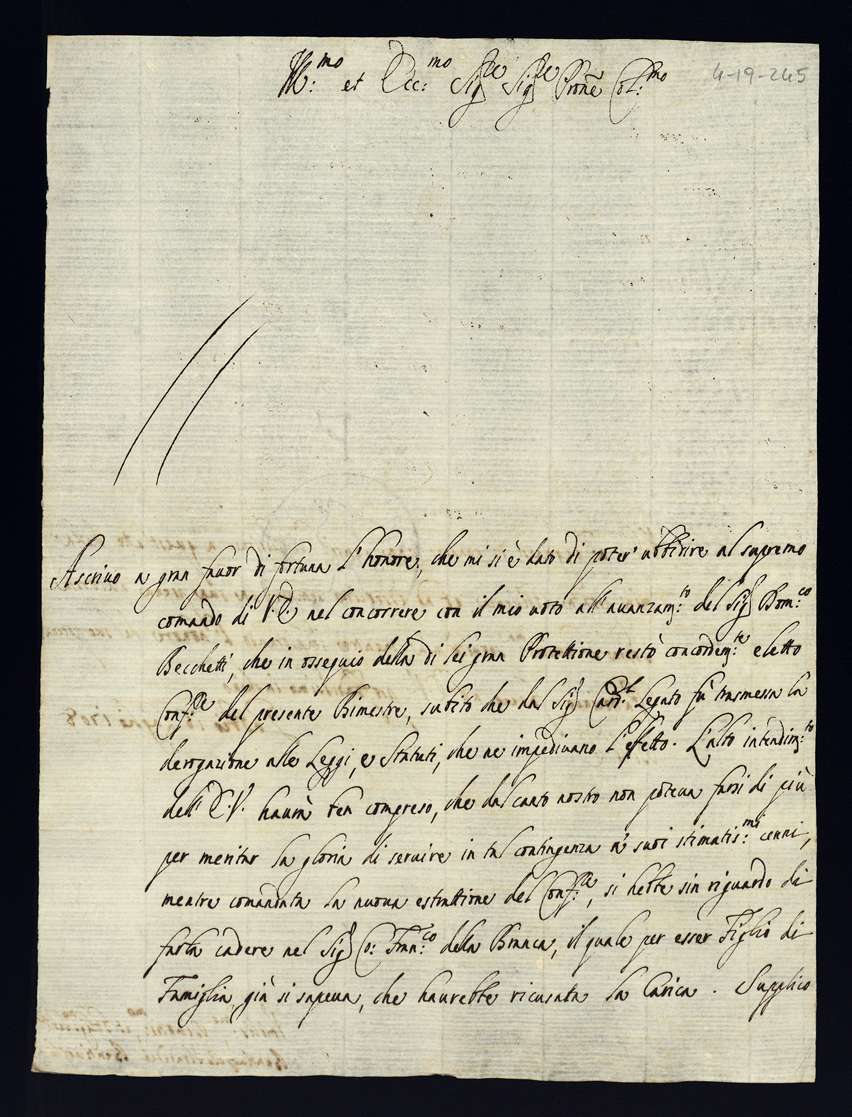 Ill:mo et Ecc:mo Sig.re Sig.re Prone Col:mo
4-19-245
Ascriuo a gran fauor di fortuna l'honore, che mi si è dato di poter' ubbidire al supremo
comando di V.E. nel concorrere con il mio uoto all'auanzam:to del Sig.r Dom:co
Becchetti, che in ossequio della di lei gran Protettione restò concordem:te eletto
Conf:re del presente Bimestre, subito che dal Sig.r Card:l Legato fù trasmessa la
derogazione alle Leggi, e Statuti, che ne impediuano l'effetto. L'alto intendim:to
dell'E.V. haurà ben compreso, che dal canto nostro non poteua farsi di più
per meritar la gloria di seruire in tal contingenza a' suoi stimatis:mi cenni,
mentre comandata la nuoua estrattione del Conf:re, si hebbe sin riguardo di
farla cadere nel Sig.r Co: Fran:co della Branca, il quale per esser Figlio di
Famiglia già si sapeua, che haurebbe ricusata la Carica. Supplico